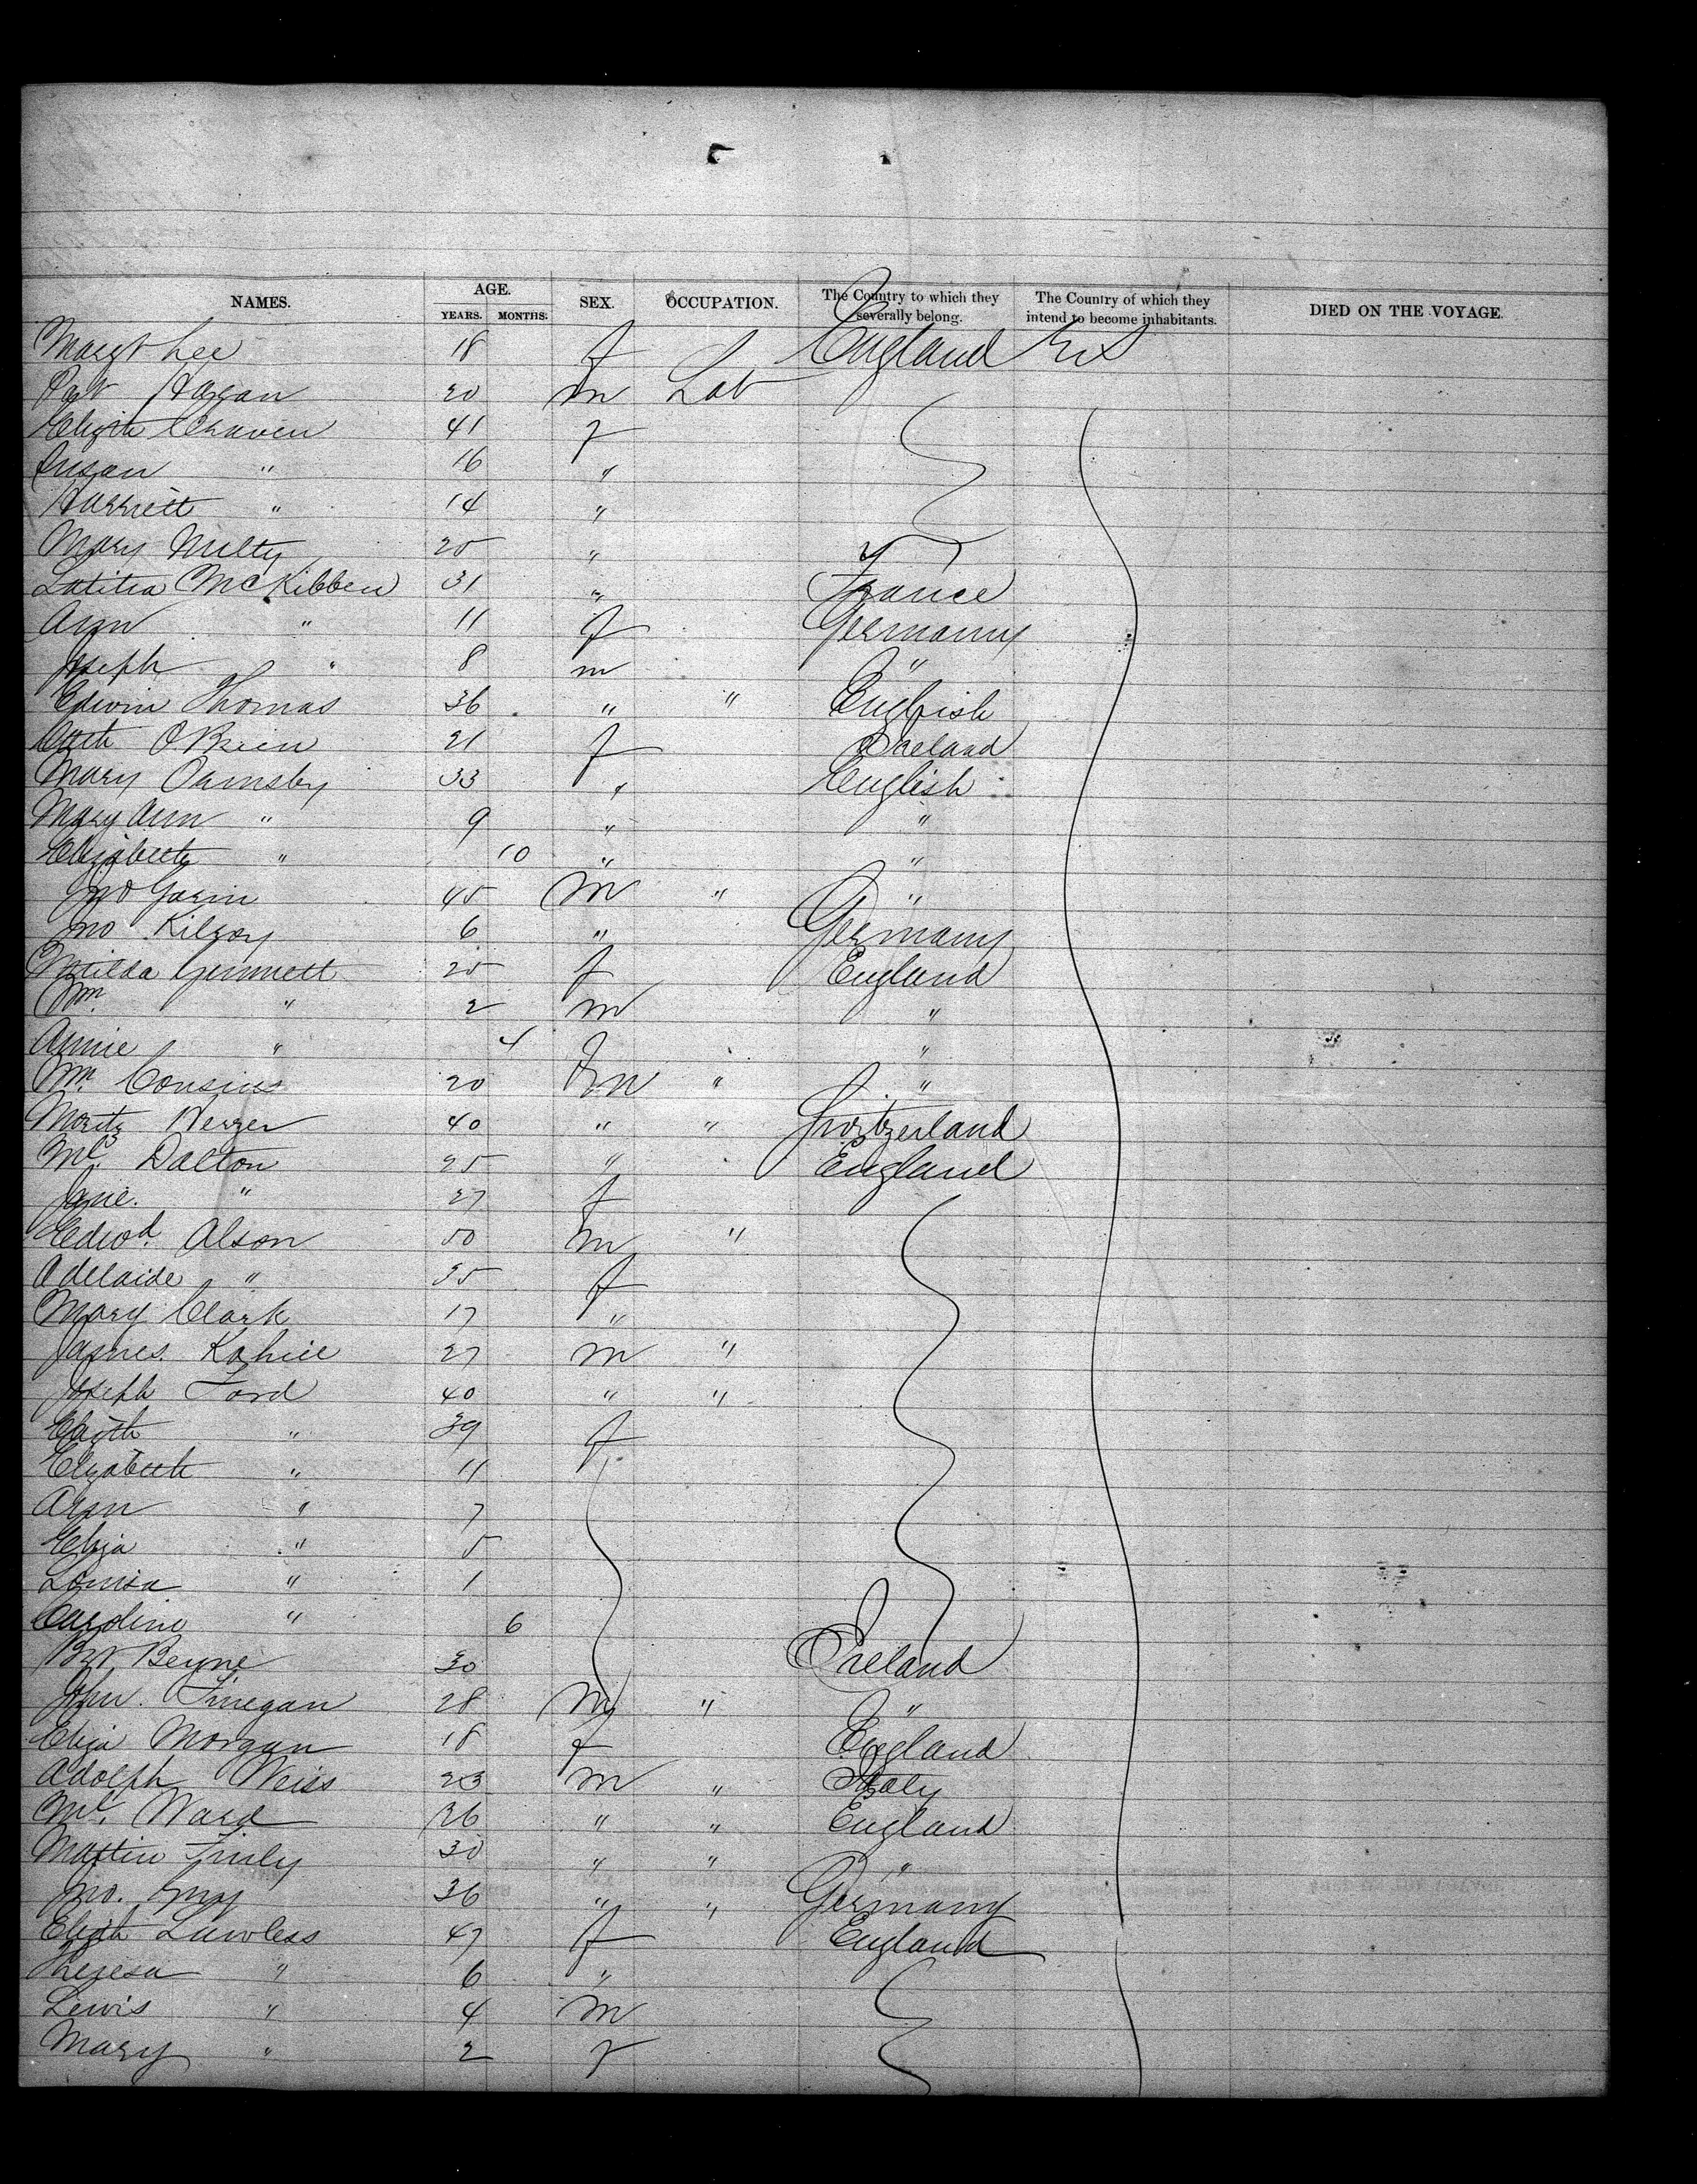 NAMES. AGE. YEARS. MONTHS. SEX. OCCUPATION. The Country to which they severally belong. The Country of which they intend to become inhabitants. DIED ON THE VOYAGE.
Margt Lee 18 f England
Pat Hagan 20 m Lab
Elizth Craven 41 f
Susan " 16 "
Harriett " 14 "
Mary Nulty 25 "
Latitia McKibben 31 " France
Ann " 11 f Germany
Joseph " 8 m "
Edwin Thomas 36 " " English
Cath OBrien 21 f Ireland
Mary Ormsby 33 " English
Mary Ann " 9 " "
Elizabeth " 10 " "
Jno Garin 45 m " "
Jno Kilroy 6 " Germany
Matilda Gummett 25 f England
Wm " 2 m "
Annie " 4 f "
Wm Cousins 20 m " "
Moritz Herzer 40 " " Switzerland
Ml Dalton 25 " " England
Jane. " 27 f
Edwd. Alson 50 m "
Adelaide " 35 f
Mary Clark 17 "
James. Kahill 27 m "
Joseph Ford 40 " "
Elizth " 39 f
Elizabeth " 11
Ann " 7
Eliza " 5
Louisa " 1
Caroline " 6
Bgt Beyne 30 Ireland
John. Finegan 28 m " "
Eliza Morgan 18 f England
Adolph Weiss 23 m " Italy
Ml. Ward 36 " " England
Martin Finly 30 " " "
Jno. Gray 36 " " Germany
Elizth Lawless 47 f England
Theresa " 6 "
Lewis " 4 m
Mary " 2 f